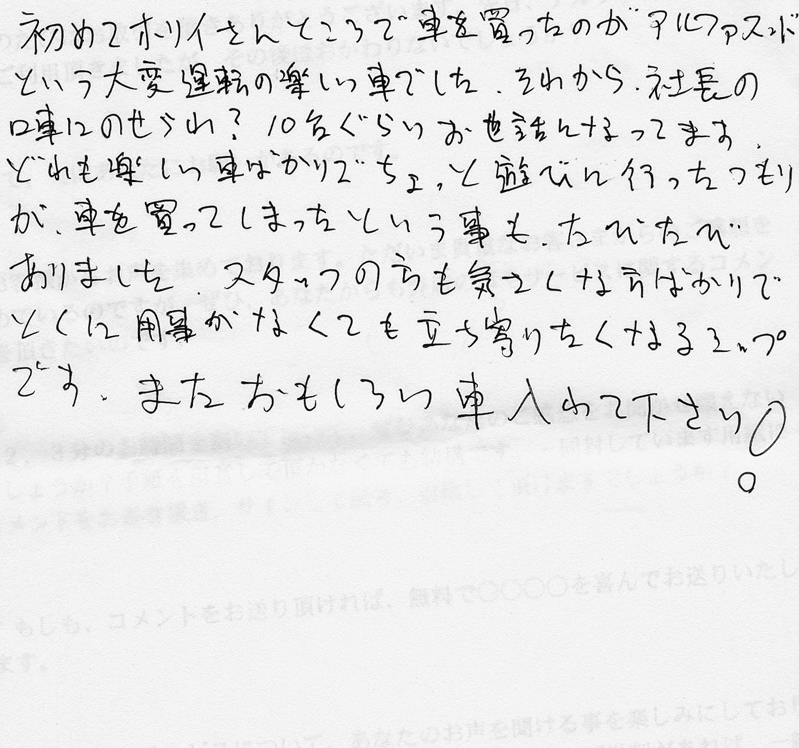 初めてホリイさんところで車を買ったのがアルファスッド
という大変運転の楽しい車でした。それから、社長の
口車にのせられ?10台ぐらいお世話になってます。
どれも楽しい車ばかりでちょっと遊びに行ったつもり
が、車を買ってしまったという事も、たびたび
ありました。スタッフの方も気さくな方ばかりで
とくに用事がなくても立ち寄りたくなるショップ
です。またおもしろい車入れて下さい!
もしも、コメントをお送り頂ければ、無料で〇〇〇〇を喜んでお送りいたし
ます。
あなたのお声を聞ける事を楽しみにしており